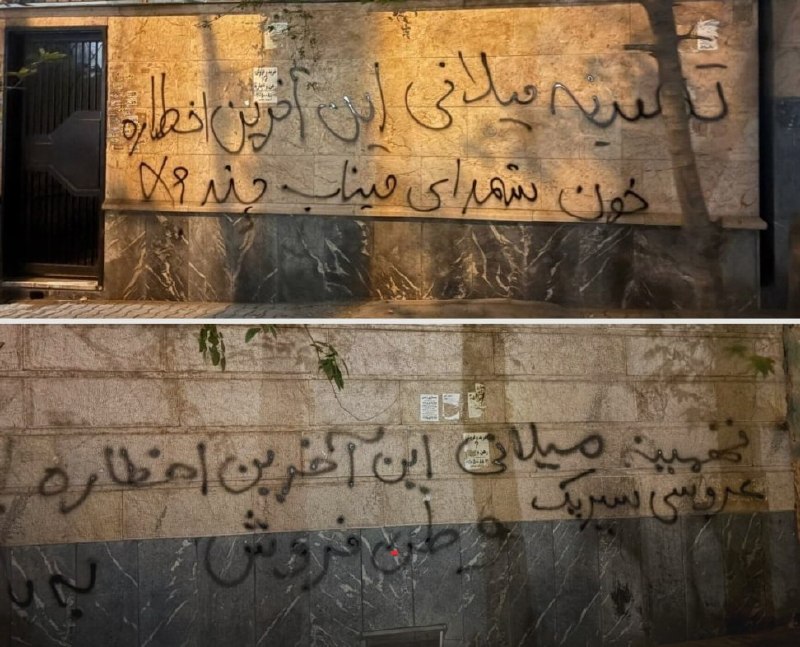 تهمینه میلانی این آخرین اخطاره
خون شهدای میناب چند ؟!
تهمینه میلانی این آخرین اخطاره
عروسی سیریک
وطن فروش